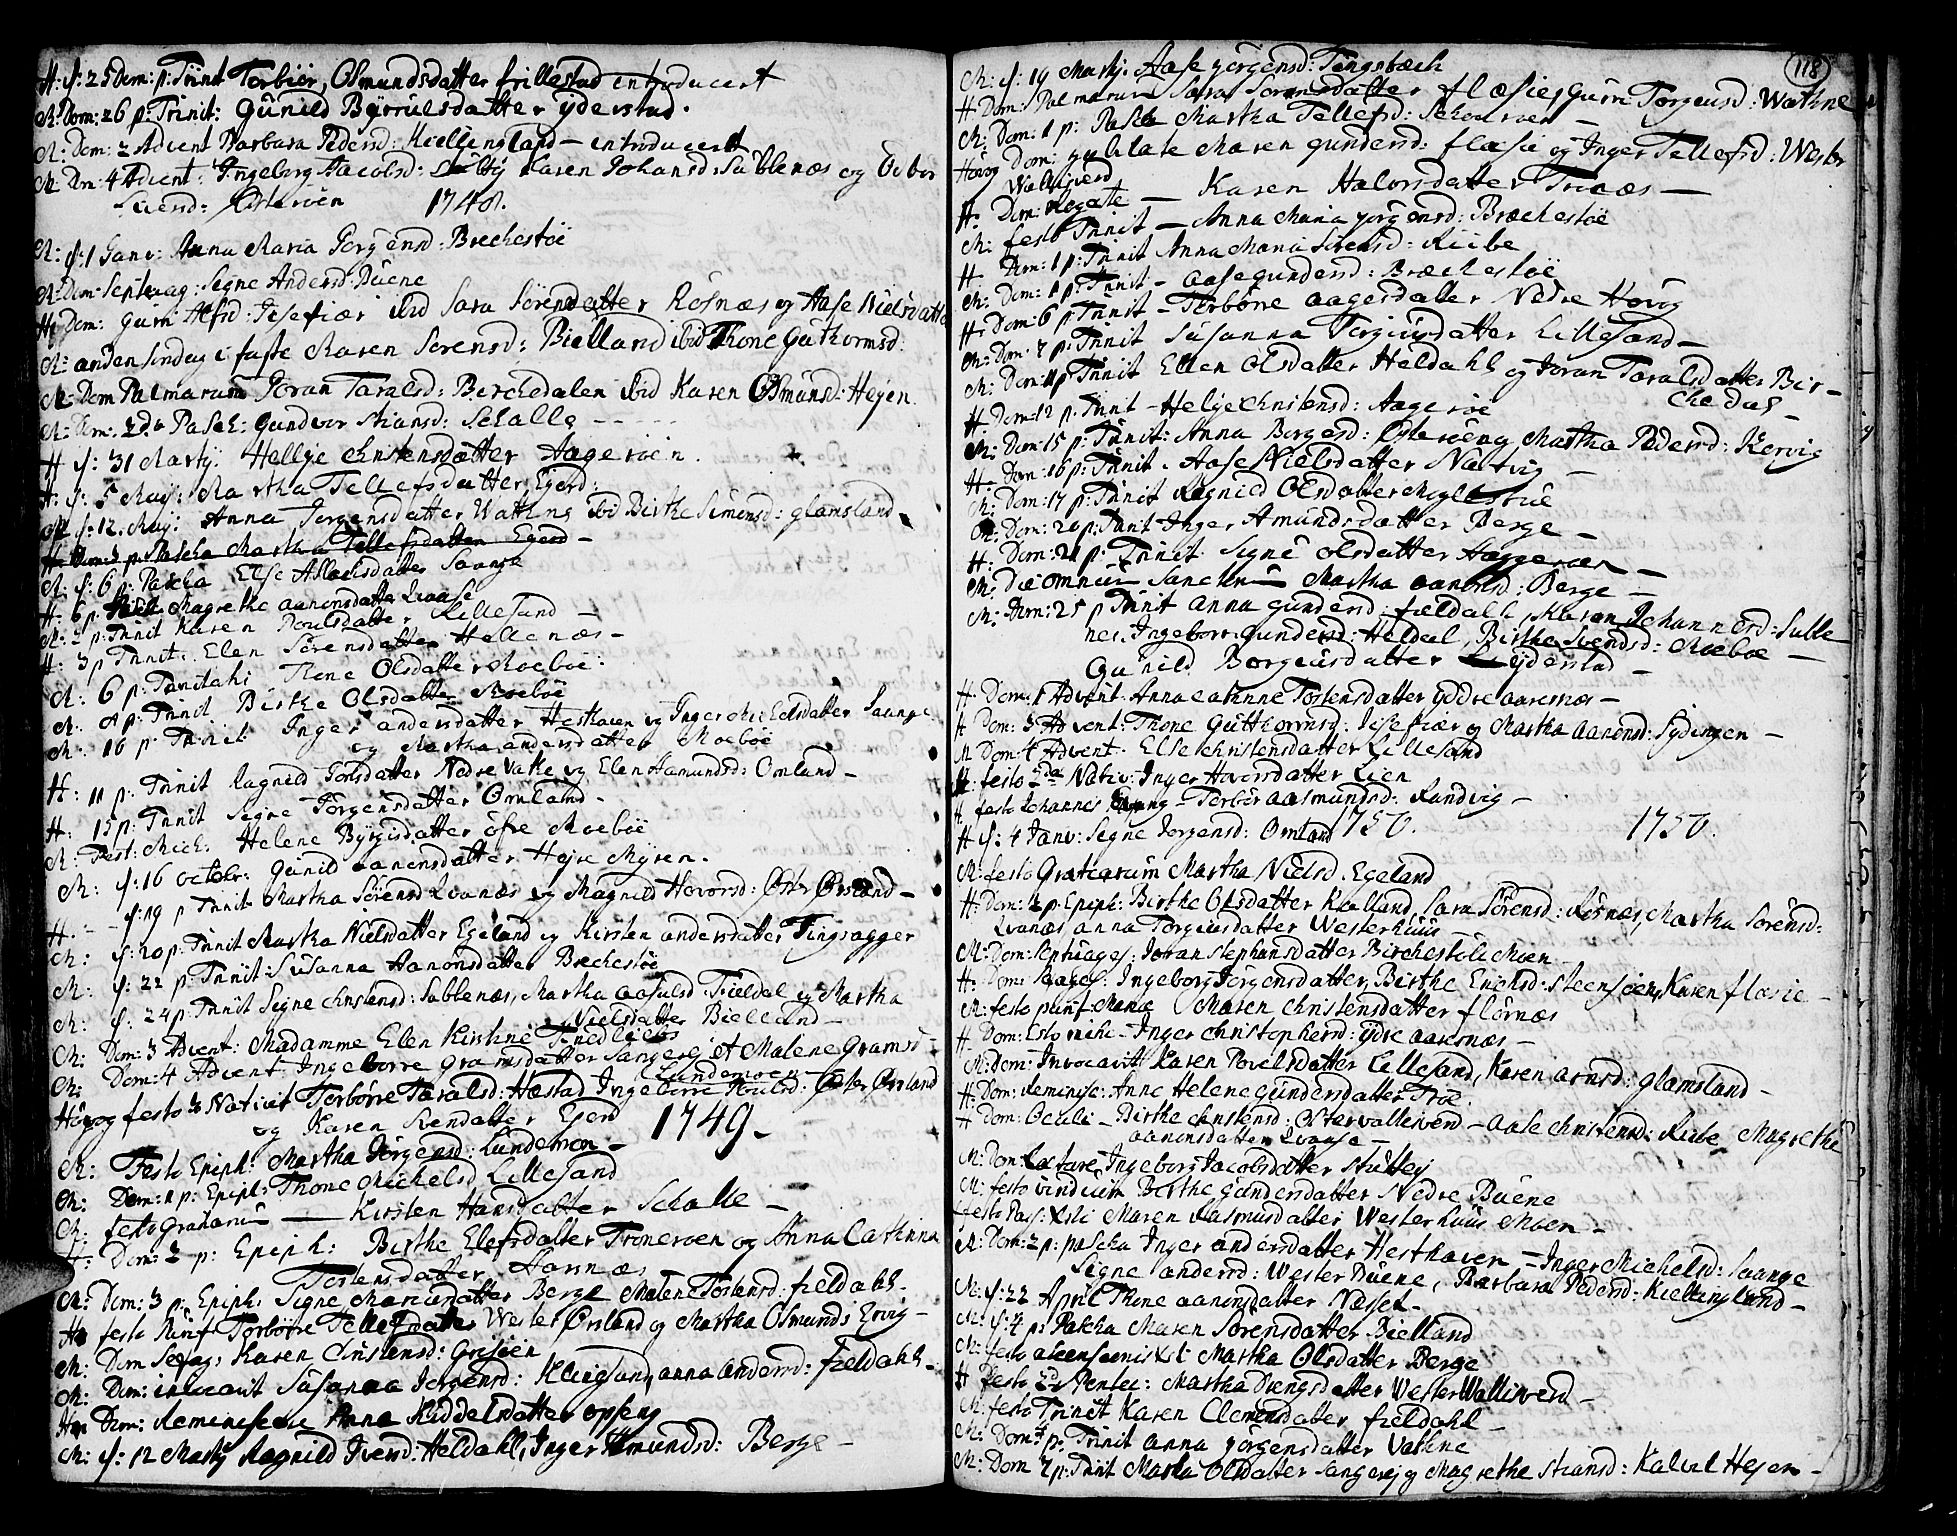 H: f: 25 Dom: p: Trinit Torbiör, Osmundsdatter frillestad introducert
M: Dom: 26 p: Trinit: Gunild Byrriulsdatter yderstad.
M: Dom: 2 Advent Barbara Pedersd: Kiellingland – introducert
M: Dom: 4 Advent: Ingeborg Jacobsd: Karen Johansd: Sublenæs og
1748.
M: f: 1 Janv: Anna Maria Jørgensd: Brechestöe
M: Dom: Septuag: Segne Andersd: Büene
Dom: Guri Alfsd: Isefiær ibd Sara Sörensdatter Rosnæs og Aase Nielsdatter
M: anden Sondag i faste Maren Sorensd: Bielland ibd Thone Guthormsd.
M: Dom Palmarum Joran Taralsd: Berchedalen ibd Karen Osmunsd: Heyen.
M: Dom: 2da Pasch: Gundvor Stiansd: Schalle
H f: 31 Martij. Hellje Christensdatter Aageröen.
H: f: 5 Maij: Martha Tellefsdatter Egerd:
M f: 12. Maij: Anna Jorgensdatter Wathne ibd Birthe Simonsd: glamsland
H: Dom: 3 p: Pascha Martha Tellefsdatter Egerd –
M: f: 6 p: Pascha Else Aslachsdatter Saange
H: 6 p: Magrethe aanonsdatter Qvaase
M: 2 p: Trinit Karen Poulsdatter Lillesand –
H: 3 p Trinit: Elen Sörensdatter Hellenæs –
M: 6 p: Trinitati Thone Olsdatter Moeböe:
M: 8 p: Trinit Birthe Olsdatter Moeböe
M: 10 p: Trinit Inger andersdatter Hesthaven og Inger Michelsdatter Saange
og Martha andersdatter Moeböe
H: 11 p: Trinit Ragnild Torsdatter Nedre Vatne og Elen Aamundsd: Omland –
H: 15 p: Trinit Segne Jörgensdatter Omland –
M: Fest: Mich. Helene Byrgisdatter öfre Moeböe
M: f: 16 octobr: Gunild aanonsdatter Höjre Myren.
H f: 19 p Trinit Martha Sörensd Qvanæs og Magnild Hovorsd: Oster Orsland –
M: f: 20 p: Trinit Martha Nielsdatter Egeland og Kirsten andersdatter Tingsagger
M: f: 22 p: Trinit: Susanna Aanonsdatter Brechestöe
M: f: 24 p: Trinit Segne Christensd: Sublenæs, Martha aasulsd: Fieldal og Martha
Nielsdatter Bielland –
M: Dom: 3 Advent: Madamme Elen Kirstine Friedlieb
M: Dom: 4 Advent: Ingeborre Gramsdatter Sangerej et Malene Gramsd –
Lundemoen –
Høvog festo 3 Nativit Torborre Taralsd: Hæstad Ingeborre Poulsd: Oster Orsland
og Karen Svendatter Egerd 1749.
M: Festo Epiph: Martha Jörgensd: Lundemon –
M: Dom: 1 p: Epiph: Thone Michelsd Lillesand
M: festo gratiarum — Kirsten Hansdatter Schalle –
H: Dom: 2 p: Epiph: Birthe Elefsdatter Troneroen og Anna Cathrina
Tostensdatter Aarsnæs
M: Dom: 3 p: Epiph: Segne Mariusdatter Berge Malene Tostensd: fieldahl.
H festo Purif Torbörre Tellefsdatter Wester Orsland og Martha Osmunds Ervig –
M: Dom Sexag: Karen Christensd: Grisöen
M: Dom: invocavit Susanna Jorgensd: Klingsund, anna andersd: fieldahl –
Høv Dom: Reminiscere Anne Kiddelsdatter opseng
M: f: 12 Martij Ragnild Iversd: Heldahl, Inger Amundsd: Berge –
118
M: f: 19 Martij. Aase Jörgensd: Tingsbæch
H Dom: Palmarum Sara Sorensdatter flæsie, Gurn Torgeusd: Wathne
M: Dom: 1 p: Pascha Martha Tellefsd: Schouroen –
Høvog Dom: jubilate Maren gundersd: flæsie og Inger Tellefsd: Wester
Walleverd
H: Dom: Rogate — Karen Halvorsdatter Trinæs —
M: festo Trinit — Anna Maria Jorgensd: Bræchestöe
H Dom: 1 p: Trinit Anna Maria Sirensd: Riibe
M: Dom: p: Trinit – aase gundersd: Bræchestöe
H: Dom: 6 p Trinit – Torbörre aagesdatter Nedre Hovig
M: Dom 7 p: Trinit Susanna Torgiusdatter Lillesand –
M: Dom 11 p Trinit Ellen Olsdatter Heldahl og Joran Taralsdatter Bir-
chedal –
H Dom: 12 p. Trinit – Helje Christensd: Aageröe
M: Dom 15 p: Trinit: Anna Borgesd: Osteröen og Martha Pedersd: Kervig
H: Dom: 16 p: Trinit. Aase Nielsdatter Natvig –
M: Dom: 17 p: Trinit Ragnild Olsdatter Moglestue
M: Dom: 20 p: Trinit Inger Amundsdatter Berge –
H: Dom: 21 p: Trinit Signe Olsdatter Haggeraas –
M: Die omnium Sanctorum Martha aanonsd: Berge —
M: Dom: 25 p Trinit anna gundersd: fieldahl, Karen Johannesd: Sulle
nes, Ingeborre gundersd: Heldal, Birthe Svendsd: Moeboe –
Gunild Borgeusdatter yderstad –
H Dom: 1 Advent Anna Cathrine Tostensdatter yddre aaresnæs –
H Dom: 3 Advent: Thone Guthormsd: Isefiær og Martha aanonsd: Sydingen –
M Dom 4 Advent. Else Christensdatter Lillesand
H. festo 2da Nativ: Inger Hovorsdatter Lien
H. festo Johannes Evang – Torbör aasmundsd: Rundvig –
H f: 4 Janv: Segne Jorgensd: Omland 1750. 1750.
M: festo Gratiarum Martha Nielsd: Egeland
H: Dom: 2 p: Epiph: Birthe Olsdatter Kialland, Sara Sörensd: Rosnæs, Martha Sorensd:
Qvanæs, anna Torgiusdatter Westerhuus –
M: Dom: Septuages: Joran Stephansdatter Birchestöl Moen –
H: Dom: Sexages: Ingeborg Jörgensdatter, Birthe Erichsd: Steensöen, Karen flæsie –
M: festo purif: Mariæ Maren Christensdatter flörnæs
H Dom: Esto mihi – Inger Christophersd: ydre aaresnæs –
M: Dom: Invocavit Karen Povelsdatter Lillesand, Karen arnsd: glamsland –
H: Dom: Reminisc: Anne Helene Gundersdatter Troe.
H Dom: Oculi – Birthe Christensd: Oster walleverd – Aase Christensd: Riibe Magrethe
aanonsdatter Qvaase –
M: Dom: Lætare, Ingeborg Jacobsdatter Stuttej
M: festo viridium Birthe Gundersdatter Nedre Büene
festo Pas: Xsti Maren Rasmusdatter Westerhuus Moen –
M: Dom: 2 p: pascha Inger andersdatter Hesthaven – Inger Michelsd: Saange
Signe andersd: Wester Büene, Barbara Pedersd: Kiellingland –
M: f: 22 April Thone aanonsdatter Næsset –
M: f: 4 p: Pascha Maren Sorensdatter Bielland
M: festo ascensionis Xsti Martha Olsdatter Berge
H festo 2d Pentec: Martha Drengsdatter Wester Walleverd –
M: festo Trinit Karen Clemensdatter fieldahl –
M: Dom 1 p: Trinit anna Jörgensdatter Vathne
M: Dom 2 p: Trinit Marta Olsdatter Sangerej og Magrethe Stiansd: Kalvel Hejen –